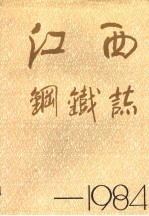 江西
鋼鐵誌
—1984